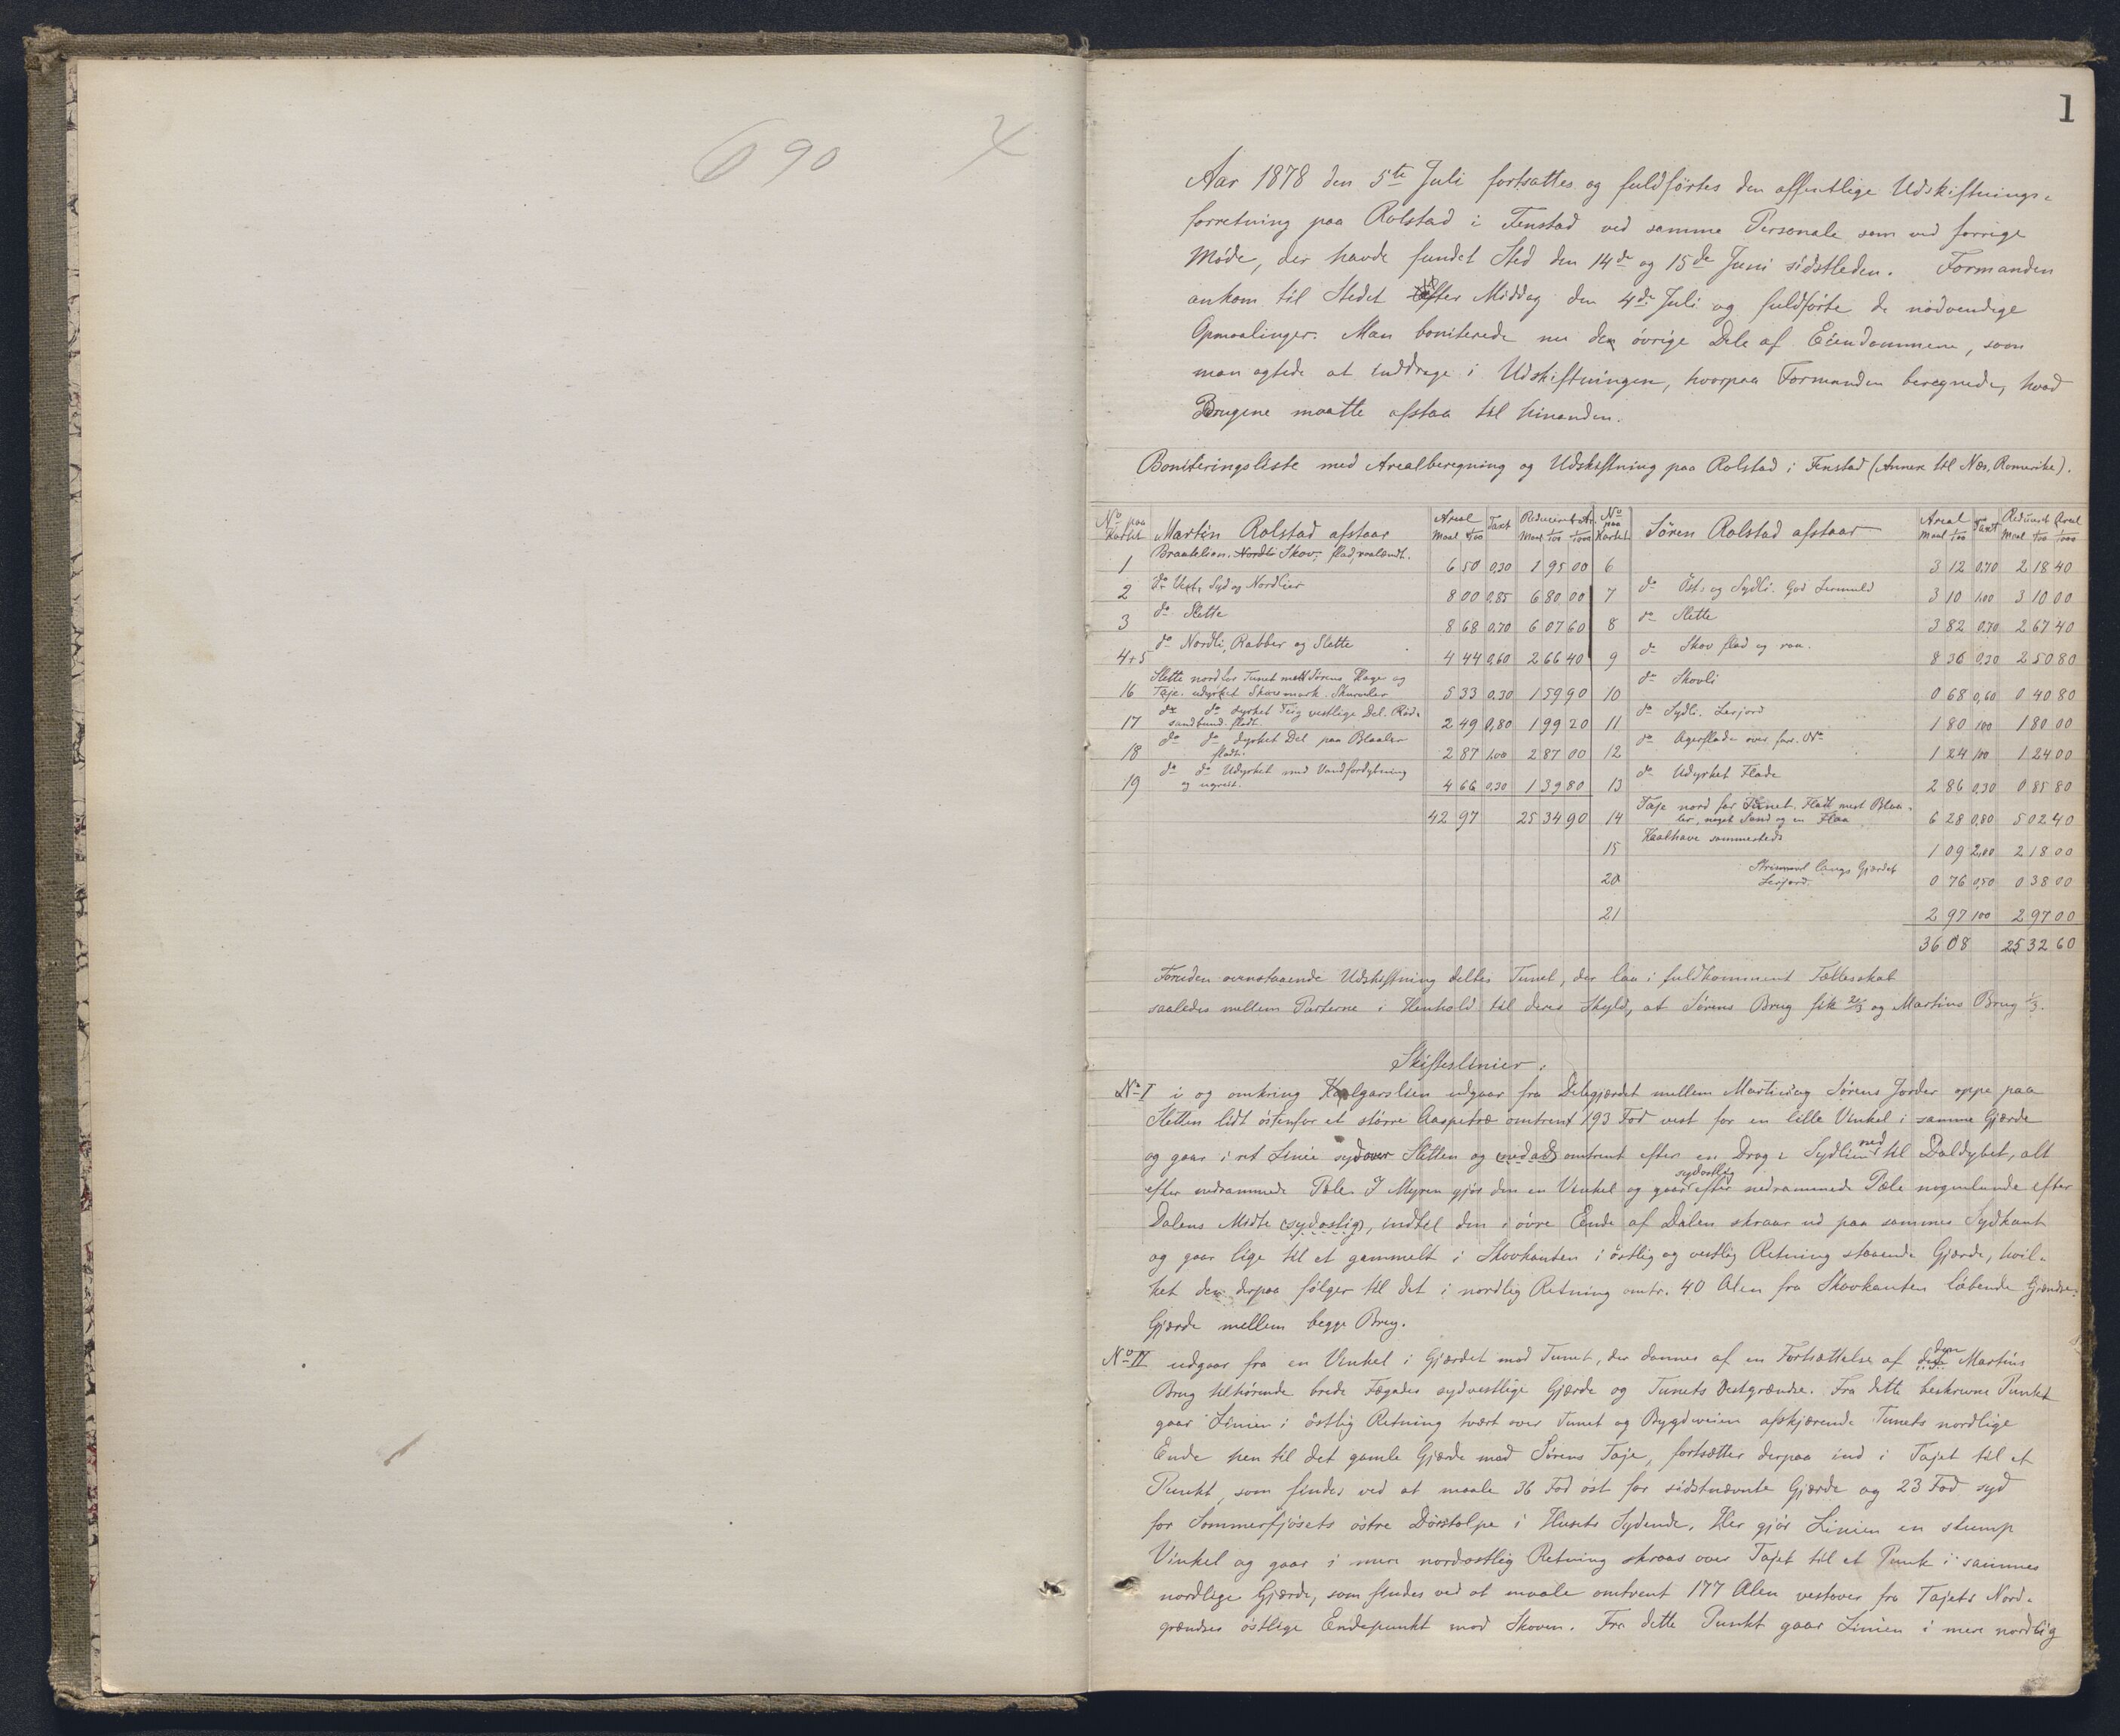 690 4
1
Aar 1878 den 5te Juli fortsattes og fuldførtes den offentlige Udskiftnings-
forretning paa Rolstad i Fenstad ved samme Personale som ved forrige
Møde, der havde fundet Sted den 14de og 15de Juni sidstleden. Formanden
ankom til Stedet Efter Middag den 4de Juli og fuldførte de nødvendige
Opmaalinger. Man boniterede nu den øvrige Dele af Eiendommene, som
man agtede at inddrage i Udskiftningen, hvorpaa Formanden beregnede, hvad
Brugene maatte afstaa til hinanden.
Boniteringsliste med Arealberegning og Udskiftning paa Rolstad i Fenstad (Annex til Næs, Romerike).
No paa Kartet Martin Rolstad afstaar Areal Maal 1/100 Taxt Reduceret Ar. Maal 1/100 1/1000 No paa Kartet Søren Rolstad afstaar Areal Maal 1/100 Taxt Reducet Areal Maal 1/100 1/1000
1 Braatelien. Nordli Skov, flad, vaalændt. 6 50 0,30 1 95 00 6 3 12 0,70 2 18 40
2 do Vest, Syd og Nordlier 8 00 0,85 6 80 00 7 do Øst- og Sydli. God Lermuld 3 10 1,00 3 10 00
3 do Slette 8 68 0,70 6 07 60 8 do Slette 3 82 0,70 2 67 40
4+5 do Nordli, Rabber og Slette 4 44 0,60 2 66 40 9 do Skov flad og raa. 8 36 0,30 2 50 80
16 Slette nord for Tunet mell Sørens Hage og
Taje. udyrket Skovsmark. 5 33 0,30 1 59 90 10 do Skovli 0 68 0,60 0 40 80
17 do do dyrket Teig vestlige Del. Rød-
sandbund. fladt. 2 49 0,80 1 99 20 11 do Sydli. Lerjord 1 80 1,00 1 80 00
18 do do dyrket Del paa Blaaler
fladt. 2 87 1,00 2 87 00 12 do Agerflade over forr. No 1 24 1,00 1 24 00
19 do do Udyrket med Vandfordybning
og ugreit. 4 66 0,30 1 39 80 13 do Udyrket Flade 2 86 0,30 0 85 80
42 97 25 34 90 14 Taje nord for Tunet. Fladt mest Blaa-
ler, noget Sand og en Flaa 6 28 0,80 5 02 40
15 Kaalhave sammesteds 1 09 2,00 2 18 00
20 langs Gjærdet
Lerjord. 0 76 0,50 0 38 00
21 2 97 1,00 2 97 00
36 08 25 32 60
Foruden ovenstaaende Udskiftning deltes Tunet, der laa i fuldkomment Fællesskab
saaledes mellem Parterne i Henhold til deres Skyld, at Sørens Brug fik 2/3 og Martins Brug 1/3.
Skifteslinier.
No I i og omkring Kolgarslien udgaar fra Delegjærdet mellem Martins og Sørens Jorder oppe paa
Sletten lidt østenfor et større Aaspetræ omtrent 193 Fod vest for en lille Vinkel i samme Gjærde
og gaar i ret Linie sydover Sletten og nedad omtrent efter en Drog i Sydlien ned til Daldybet, alt
efter nedrammede Pæle. I Myren gjør den en Vinkel og gaar sydostlig efter nedrammede Pæle nogenlunde efter
Dalens Midte (sydostlig), indtil den i øvre Ende af Dalen skraar ud paa sammes Sydkant
og gaar lige til et gammelt i Skovkanten i østlig og vestlig Retning staaende Gjærde, hvil-
ket den derpaa følger til det i nordlig Retning omtr. 40 Alen fra Skovkanten løbende Grændse-
Gjærde mellem begge Brug.
No II udgaar fra en Vinkel i Gjærdet mod Tunet, der dannes af en Fortsættelse af den Martins
Brug tilhørende brede Fægades sydvestlige Gjærde og Tunets Vestgrændse. Fra dette beskrevne Punkt
gaar Linien i østlig Retning tvært over Tunet og Bygdeveien afskjærende Tunets nordlige
Ende hen til det gamle Gjærde mod Sørens Taje, fortsætter derpaa ind i Tajet til et
Punkt, som findes ved at maale 36 Fod øst for sidstnævnte Gjærde og 23 Fod syd
for Sommerfjøsets østre Dørstolpe i Husets Sydende. Her gjør Linien en stump
Vinkel og gaar i mere nordostlig Retning skraas over Tajet til et Punk i sammes
nordlige Gjærde, som findes ved at maale omtrent 177 Alen vestover fra Tajets Nord-
grændses østlige Endepunkt mod Skoven. Fra dette Punkt gaar Linien i mere nordlig